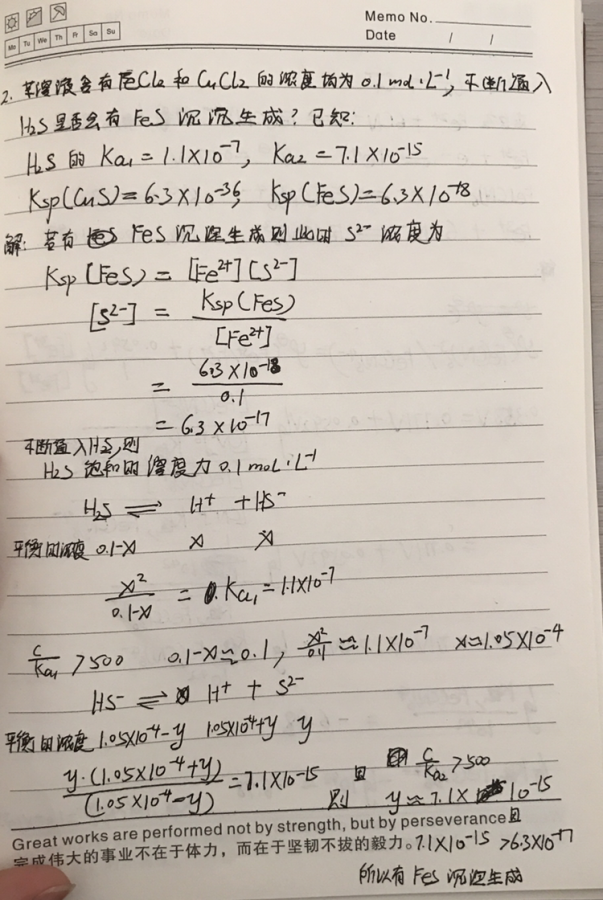 Memo No.
Mo Tu We Th Fr Sa Su
Date / /
2. 某溶液含有FeCl2 和 CuCl2 的浓度均为 0.1 mol·L⁻¹, 不断通入
H2S 是否会有 FeS 沉淀生成? 已知:
H2S 的 Ka1 = 1.1×10⁻⁷, Ka2 = 7.1×10⁻¹⁵
Ksp(CuS) = 6.3×10⁻³⁶, Ksp(FeS) = 6.3×10⁻¹⁸
解: 若有 FeS 沉淀生成则此时 S²⁻ 浓度为
Ksp(FeS) = [Fe²⁺][S²⁻]
[S²⁻] = Ksp(FeS) / [Fe²⁺]
= 6.3×10⁻¹⁸ / 0.1
= 6.3×10⁻¹⁷
不断通入H2S, 则
H2S 饱和的浓度为 0.1 mol·L⁻¹
H2S ⇌ H⁺ + HS⁻
平衡的浓度 0.1-x x x
x² / 0.1-x = Ka1 = 1.1×10⁻⁷
c/Ka1 > 500 0.1-x ≈ 0.1, x²/0.1 ≈ 1.1×10⁻⁷ x ≈ 1.05×10⁻⁴
HS⁻ ⇌ H⁺ + S²⁻
平衡的浓度 1.05×10⁻⁴-y 1.05×10⁻⁴+y y
y·(1.05×10⁻⁴+y) / (1.05×10⁻⁴-y) = 7.1×10⁻¹⁵ 且 c/Ka2 > 500
则 y ≈ 7.1×10⁻¹⁵
Great works are performed not by strength, but by perseverance 且
完成伟大的事业不在于体力，而在于坚韧不拔的毅力。 7.1×10⁻¹⁵ > 6.3×10⁻¹⁷
所以有 FeS 沉淀生成